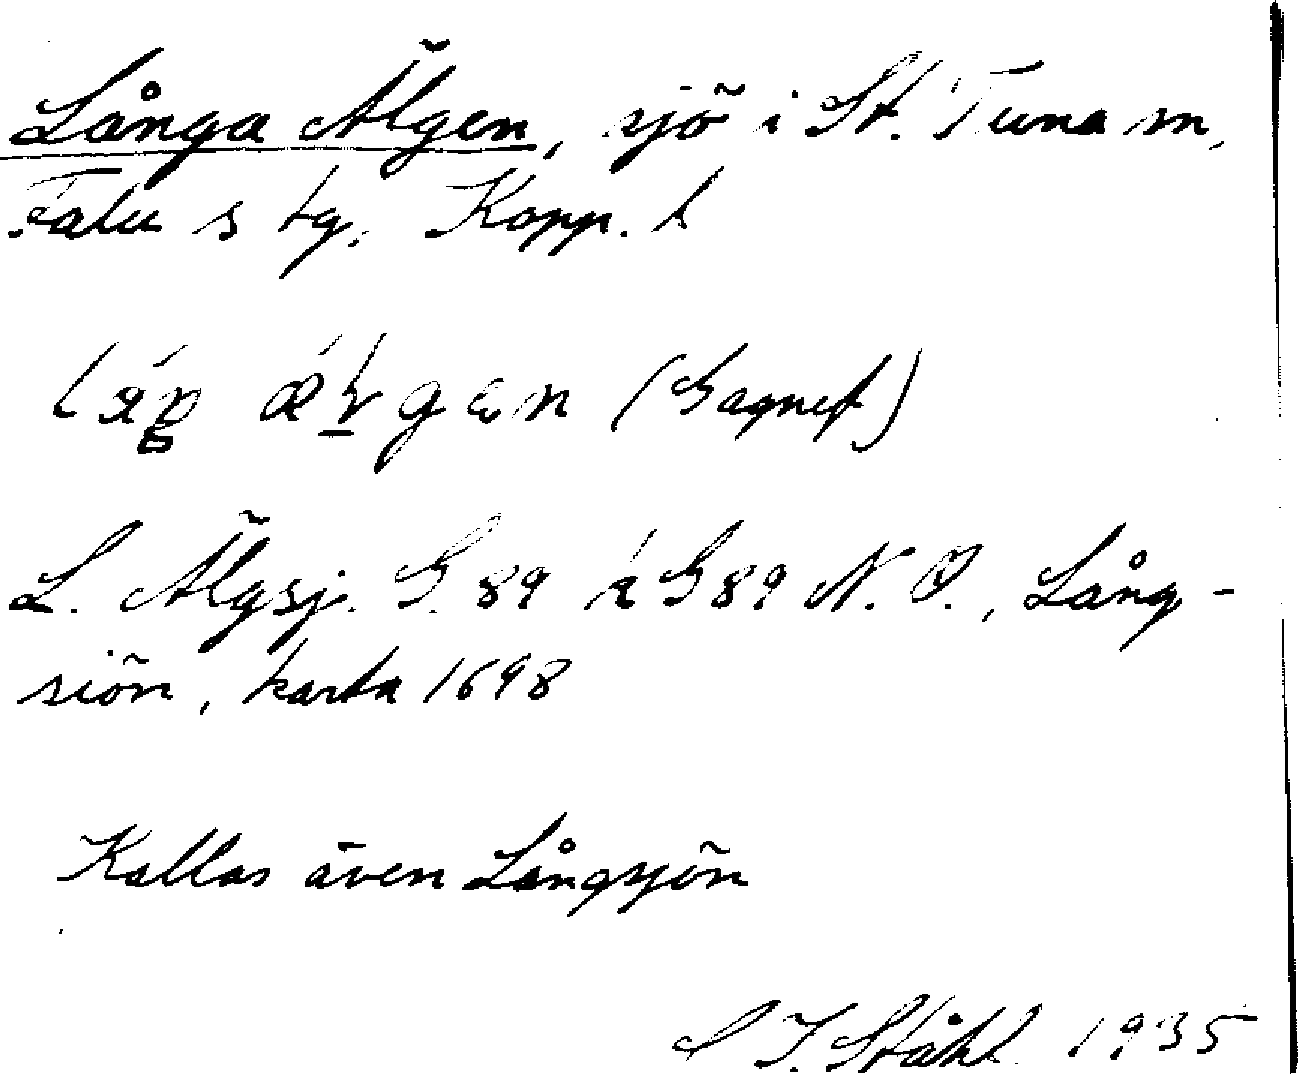 Långa Älgen, sjö i St. Tuna sn,
Falu s tg. Kopp. l
(Gagnef)
L. Älgsj. G. 89 k G 89 N. O., Lång-
siön, karta 1698
Kallas även Långsjön
I. Ståhl 1935